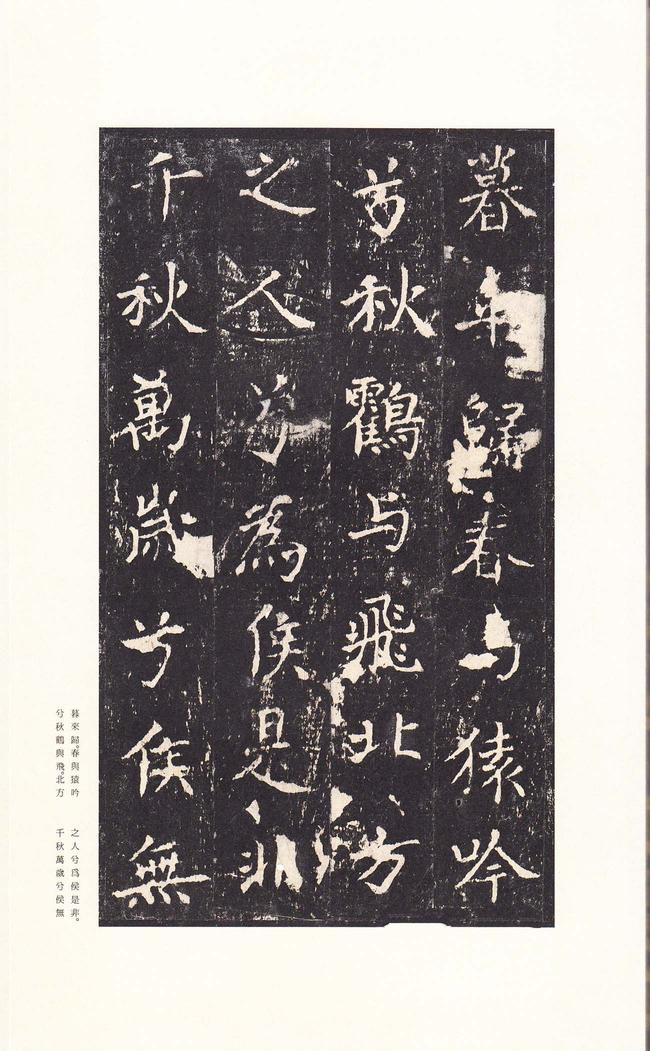 暮来歸春与猿吟
兮秋鸖与飛北方
之人兮為侯是非
千秋萬歲兮侯無
暮來歸。春與猿吟
兮秋鶴與飛。北方
之人兮爲侯是非。
千秋萬歲兮侯無